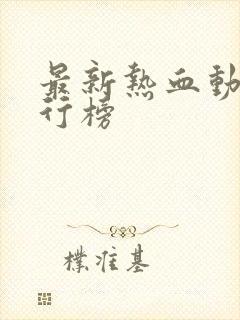 最新熱血動
行榜
樸准基